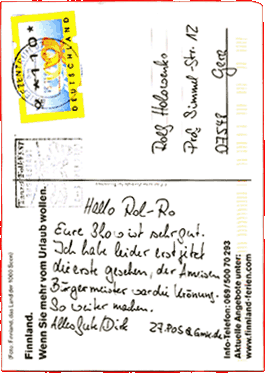 *110*
DEUTSCHLAND
Rolf Holowenko
Prof. Simmel-Str. 12
07548 Gera
Hallo Rol-Ro
Eure Show ist sehr gut.
Ich habe leider erst jetzt
die erste gesehen, der Anrufer
Bürgermeister war die Krönung.
So weiter machen.
Alles Gute / Dirk
Finnland.
Wenn Sie mehr vom Urlaub wollen.
(Foto: Finnland, das Land der 1000 Seen)
Info-Telefon: 069/50070293
Aktuelle Angebote unter:
www.finnland-ferien.com